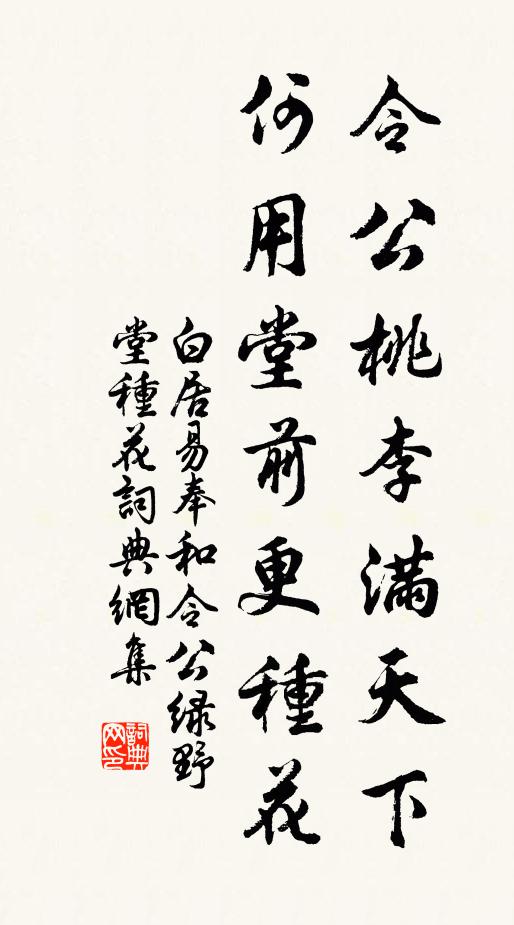 令公桃李滿天下
何用堂前更種花
白居易奉和令公緑野
堂種花詞典網集
詞典
网印